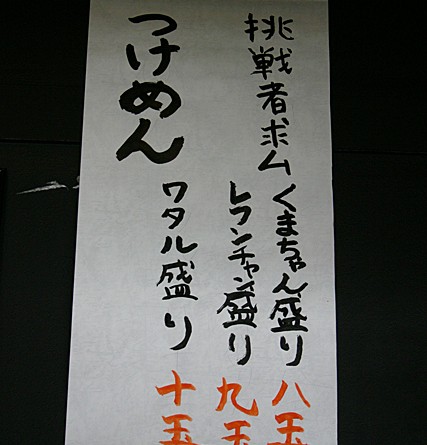 挑戦者求ム
くまちゃん盛り 八玉
レフンチャン盛り 九玉
ワタル盛り 十玉
つけめん